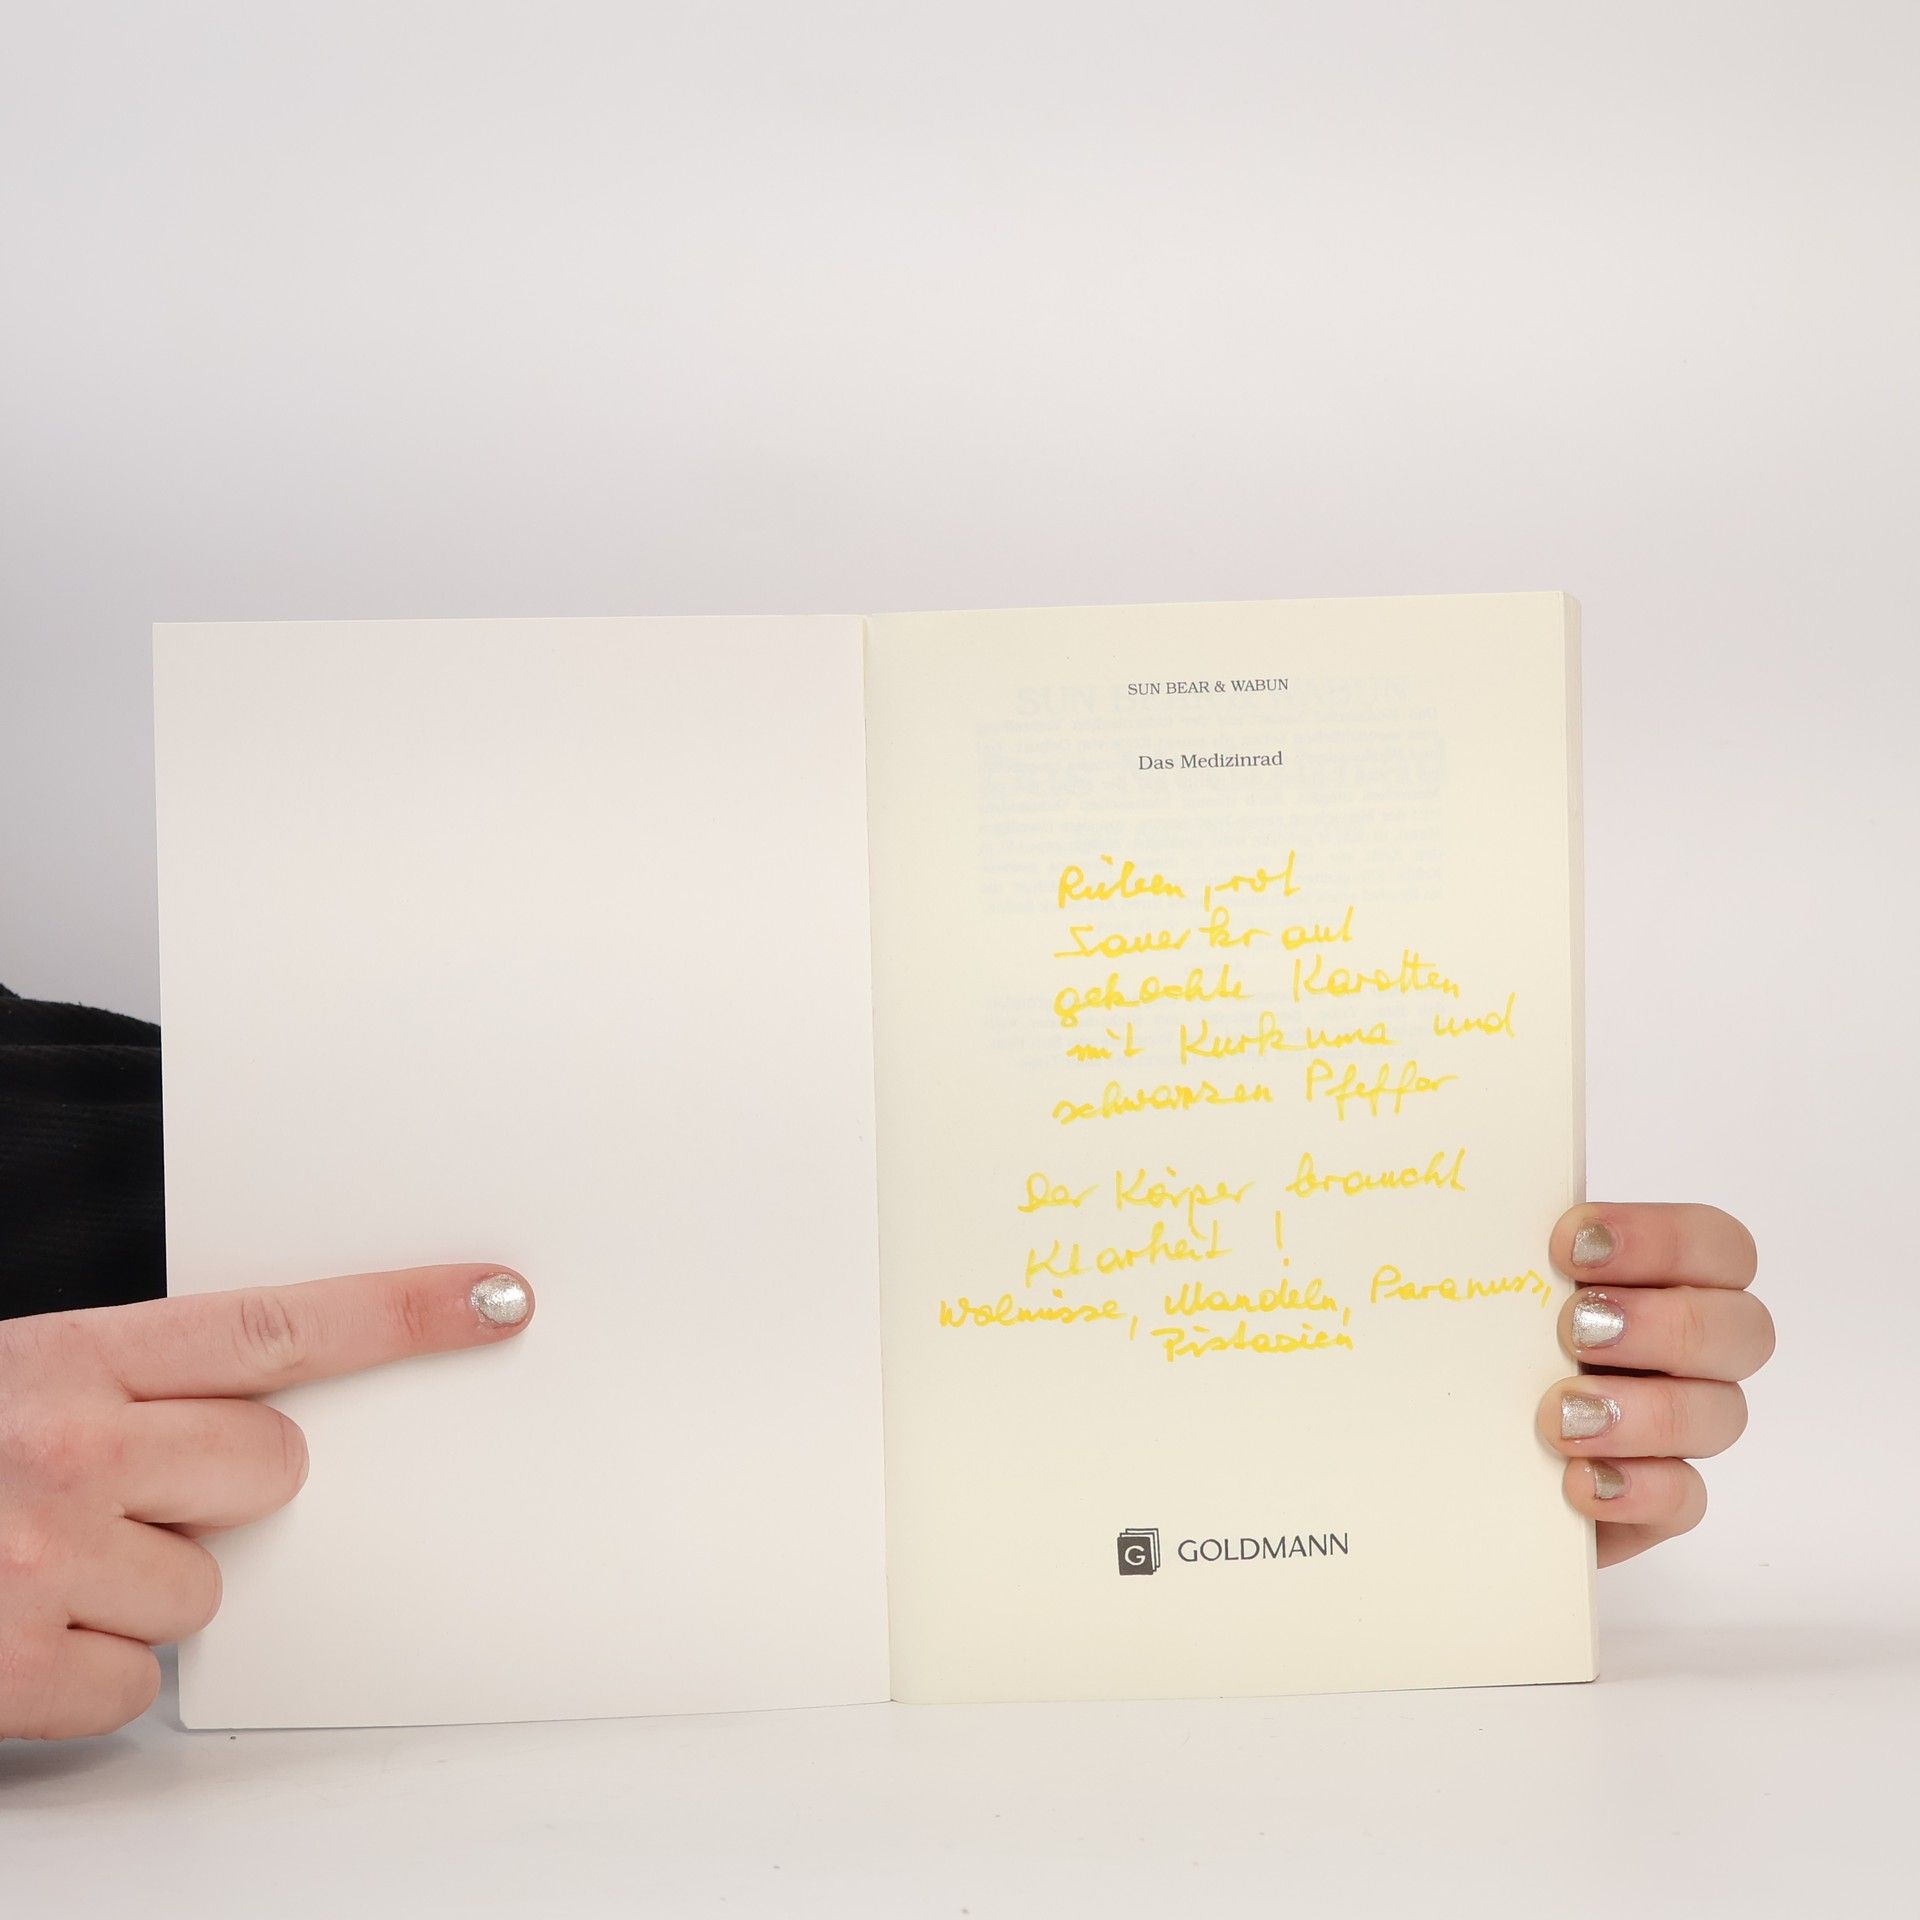 SUN BEAR & WABUN
Das Medizinrad
Rüben, rot
Sauerkraut
gekochte Karotten
mit Kurkuma und
schwarzen Pfeffer
Der Körper braucht
Klarheit !
Walnüsse, Mandeln, Paranuss,
Pistazien
G GOLDMANN